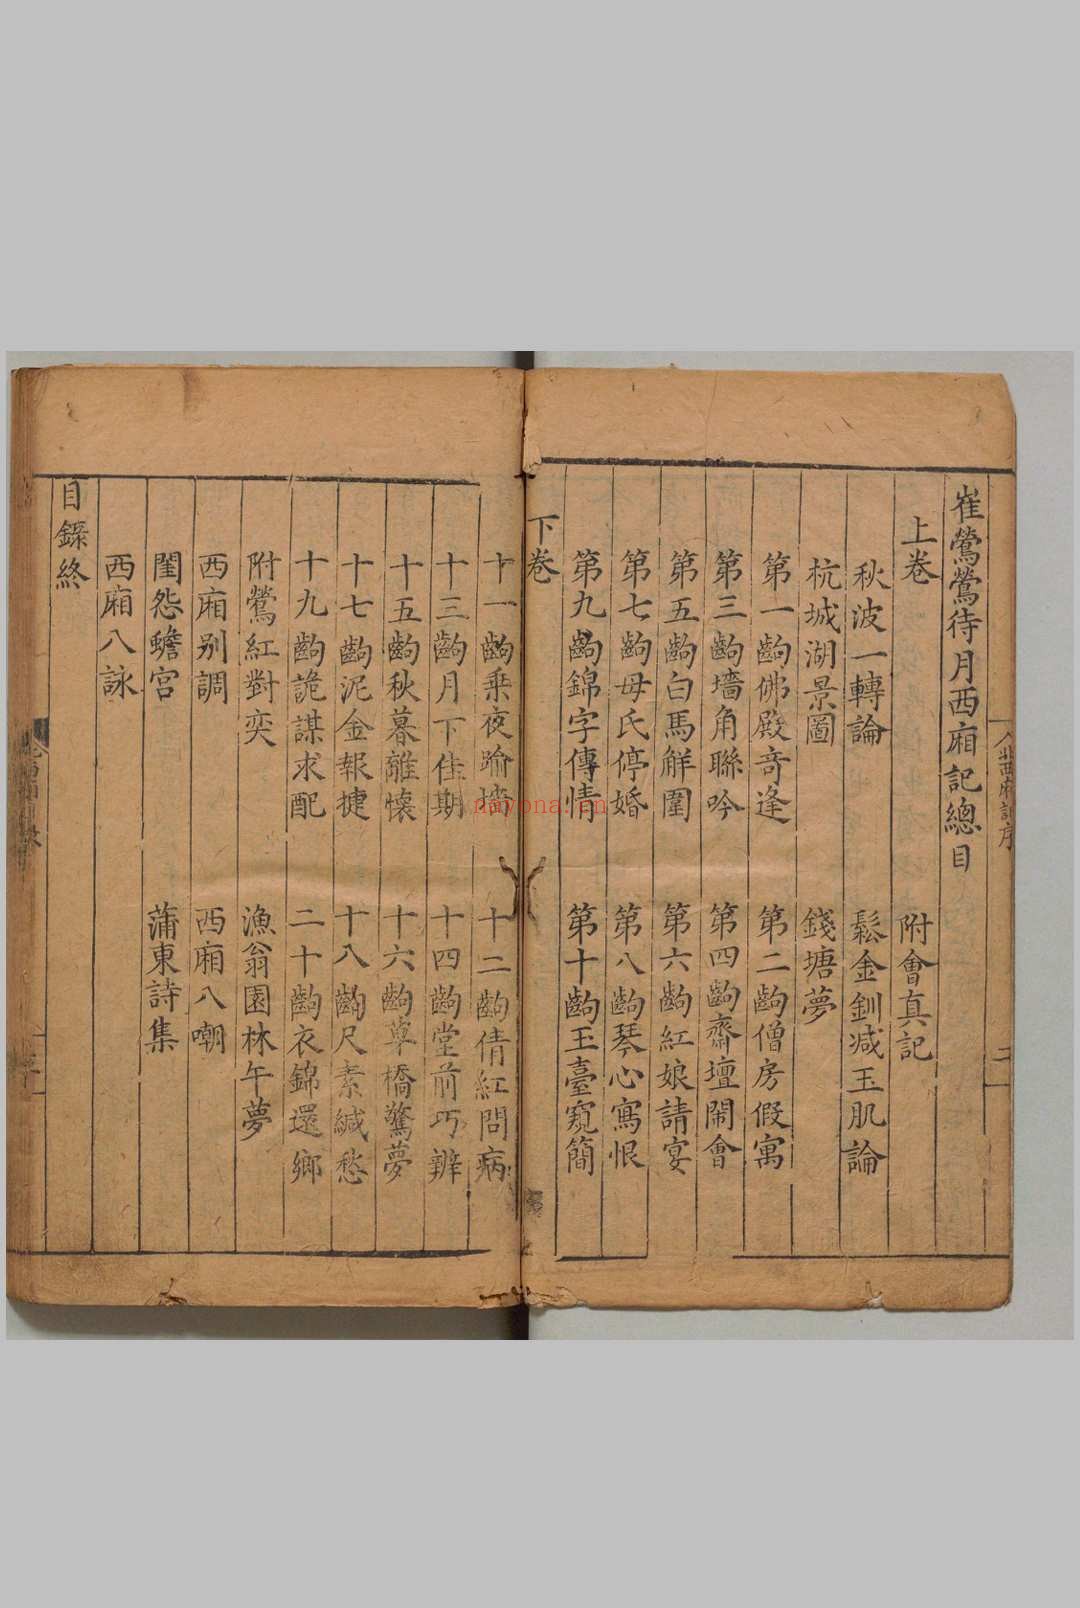 崔鶯鶯待月西廂記總目
上卷 附會真記
秋波一轉論 鬆金釧減玉肌論
杭城湖景圖 錢塘夢
第一齣佛殿奇逢 第二齣僧房假寓
第三齣墻角聯吟 第四齣齋壇鬧會
第五齣白馬解圍 第六齣紅娘請宴
第七齣母氏停婚 第八齣琴心寫恨
第九齣錦字傳情 第十齣玉臺窺簡
下卷
十一齣乘夜踰墻 十二齣倩紅問病
十三齣月下佳期 十四齣堂前巧辨
十五齣秋暮離懷 十六齣草橋驚夢
十七齣泥金報捷 十八齣尺素緘愁
十九齣詭謀求配 二十齣衣錦還鄉
附鶯紅對奕 漁翁園林午夢
西廂別調 西廂八嘲
閨怨蟾宮 蒲東詩集
西廂八詠
目錄終
nayona.cn